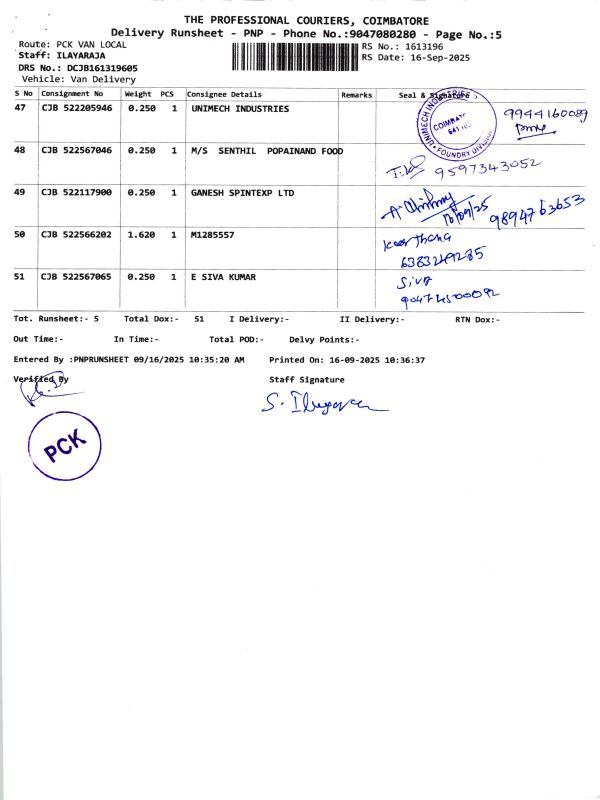 THE PROFESSIONAL COURIERS, COIMBATORE
Delivery Runsheet - PNP - Phone No.:9047080280 - Page No.:5
Route: PCK VAN LOCAL RS No.: 1613196
Staff: ILAYARAJA RS Date: 16-Sep-2025
DRS No.: DCJB161319605
Vehicle: Van Delivery
S No Consignment No Weight PCS Consignee Details Remarks Seal & Signature
47 CJB 522205946 0.250 1 UNIMECH INDUSTRIES 9944160089
UNIMECH INDUSTRIES COIMBATORE FOUNDRY DIVISION
48 CJB 522567046 0.250 1 M/S SENTHIL POPAINAND FOOD 9597343052
49 CJB 522117900 0.250 1 GANESH SPINTEXP LTD 16/09/25 9894763653
50 CJB 522566202 1.620 1 M1285557 Keerthana
6383249285
51 CJB 522567065 0.250 1 E SIVA KUMAR Siva
Tot. Runsheet:- 5 Total Dox:- 51 I Delivery:- II Delivery:- RTN Dox:-
Out Time:- In Time:- Total POD:- Delvy Points:-
Entered By :PNPRUNSHEET 09/16/2025 10:35:20 AM Printed On: 16-09-2025 10:36:37
Verified By Staff Signature
PCK